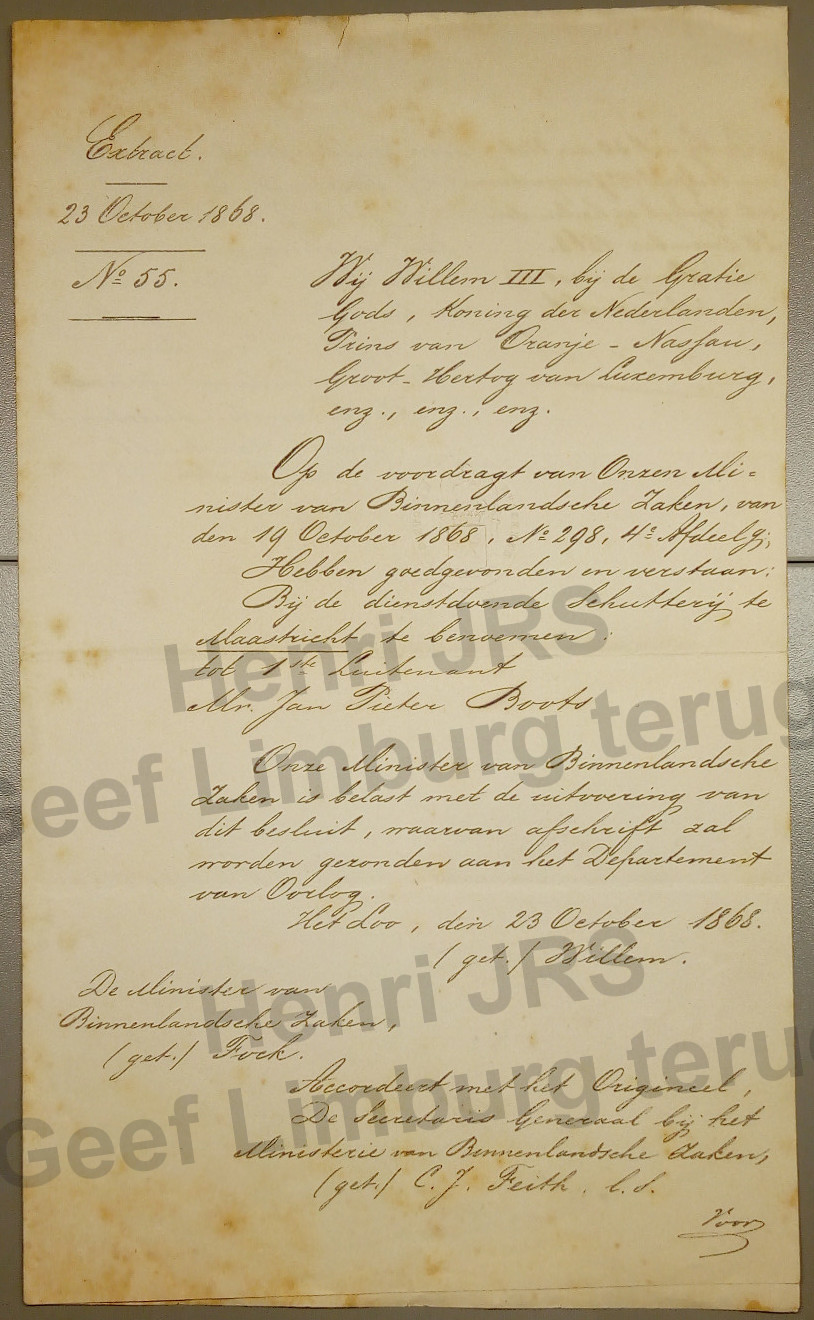 Extract.
23 October 1868.
No 55.
Wij Willem III, bij de Gratie
Gods, Koning der Nederlanden,
Prins van Oranje - Nassau,
Groot-Hertog van Luxemburg,
enz., enz., enz.
Op de voordragt van Onzen Mi=
nister van Binnenlandsche Zaken, van
den 19 October 1868, No 298, 4e Afdeelg;
Hebben goedgevonden en verstaan:
Bij de dienstdoende Schutterij te
Maastricht te benoemen:
tot 1ste Luitenant
Mr. Jan Pieter Boots
Onze Minister van Binnenlandsche
Zaken is belast met de uitvoering van
dit besluit, waarvan afschrift zal
worden gezonden aan het Departement
van Oorlog.
Het Loo, den 23 October 1868.
(get.) Willem.
De Minister van
Binnenlandsche Zaken,
(get.) Fock.
Accordeert met het Origineel,
De Secretaris Generaal bij het
Ministerie van Binnenlandsche Zaken,
(get.) C. J. Feith. l. S.
Voor
Henri JRS
Geef Limburg terug
Henri JRS
Geef Limburg terug